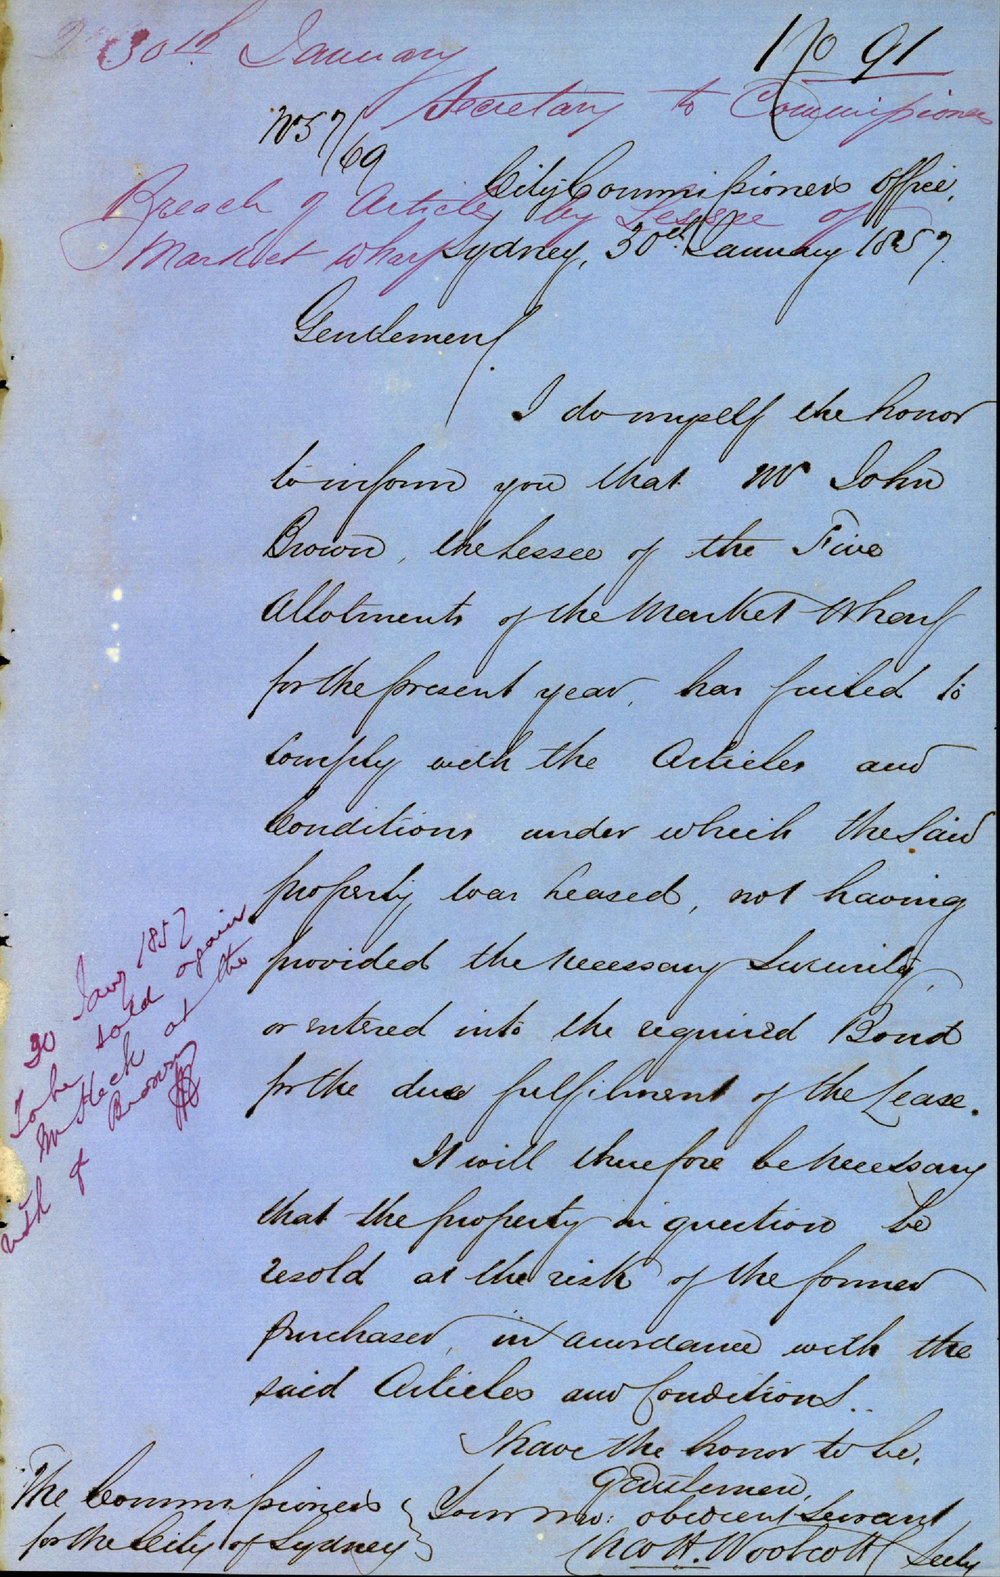 30th January
No 91
Secretary to Commissioners
No 57/69
Breach of Articles by Lessee of
Market Wharf
City Commissioners Office,
Sydney, 30th January 1857.
Gentlemen,
I do myself the honor
to inform you that Mr John
Brown, the Lessee of the Five
Allotments of the Market Wharf
for the present year, has failed to
comply with the Articles and
Conditions under which the said
property was Leased, not having
provided the necessary Security,
or entered into the required Bond
for the due fulfilment of the Lease.
It will therefore be necessary
that the property in question be
resold at the risk of the former
purchaser, in accordance with the
said Articles and Conditions.
I have the honor to be,
Gentlemen,
Your mo: obedient Servant
Chas H. Woolcott Secty
The Commissioners
for the City of Sydney
30 Jany 1857
To be sold again
at the
Brown